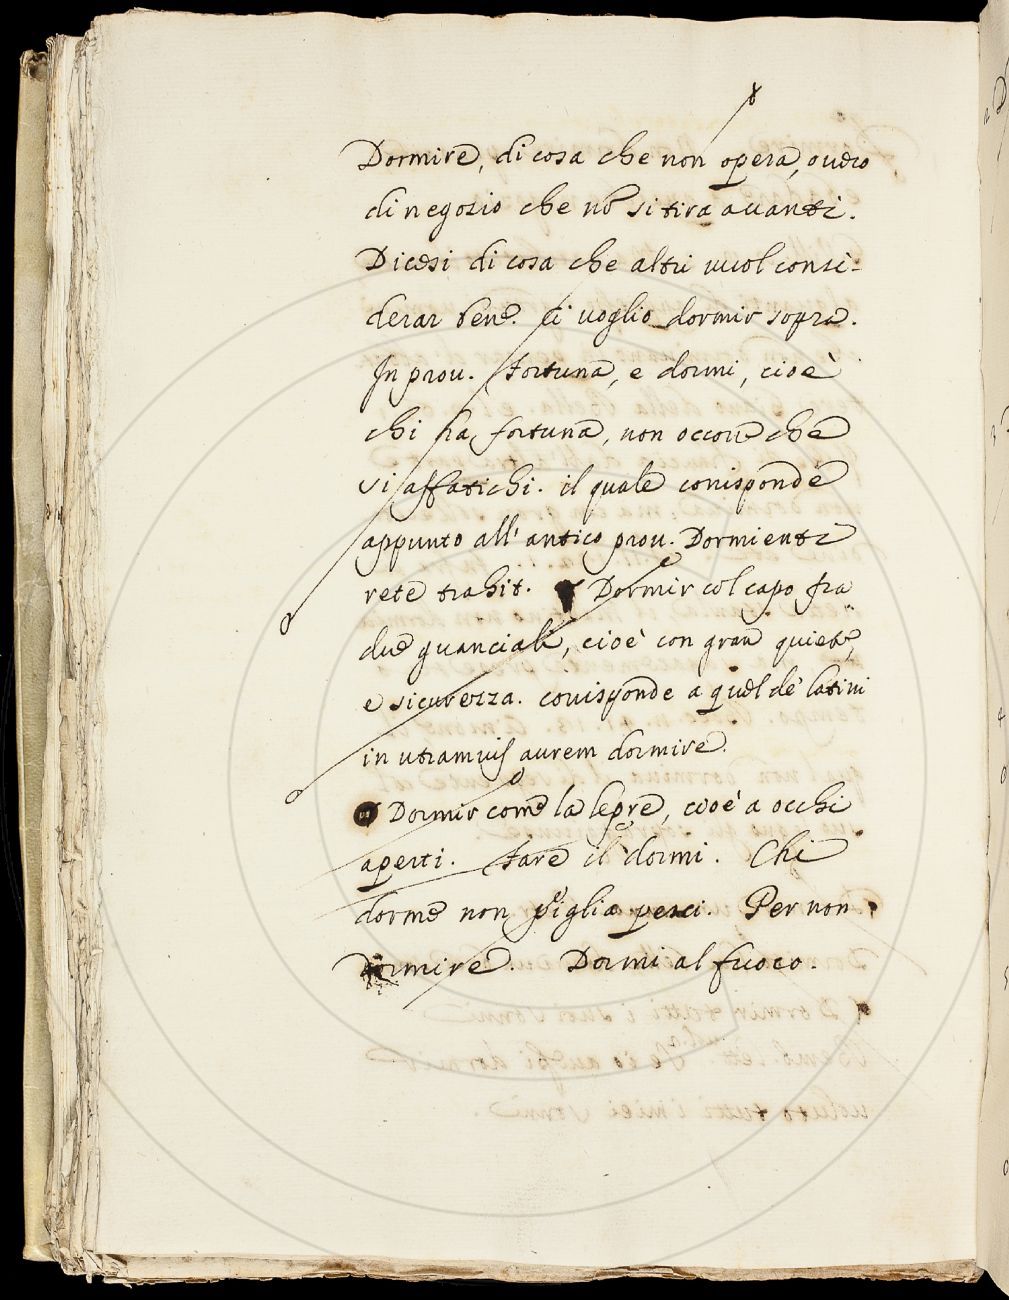 Dormire, di cosa che non opera, ouero
di negozio che nõ si tira auanti.
Dicesi di cosa che altri vuol consi-
derar bene. Ci uoglio dormir sopra.
In prou. fortuna, e dormi, cioè
chi ha fortuna, non occorre che
si affatichi. il quale corrisponde
appunto all' antico prou. Dormienti
rete trahit. Dormir col capo fra
due guanciali, cioè con gran quiete,
e sicurezza. corrisponde a quel de' latini
in utramuis aurem dormire.
Dormir come la lepre, cioè a occhi
aperti. fare il dormi. Chi
dorme non piglia pesci. Per non
dormire. Dormi al fuoco.